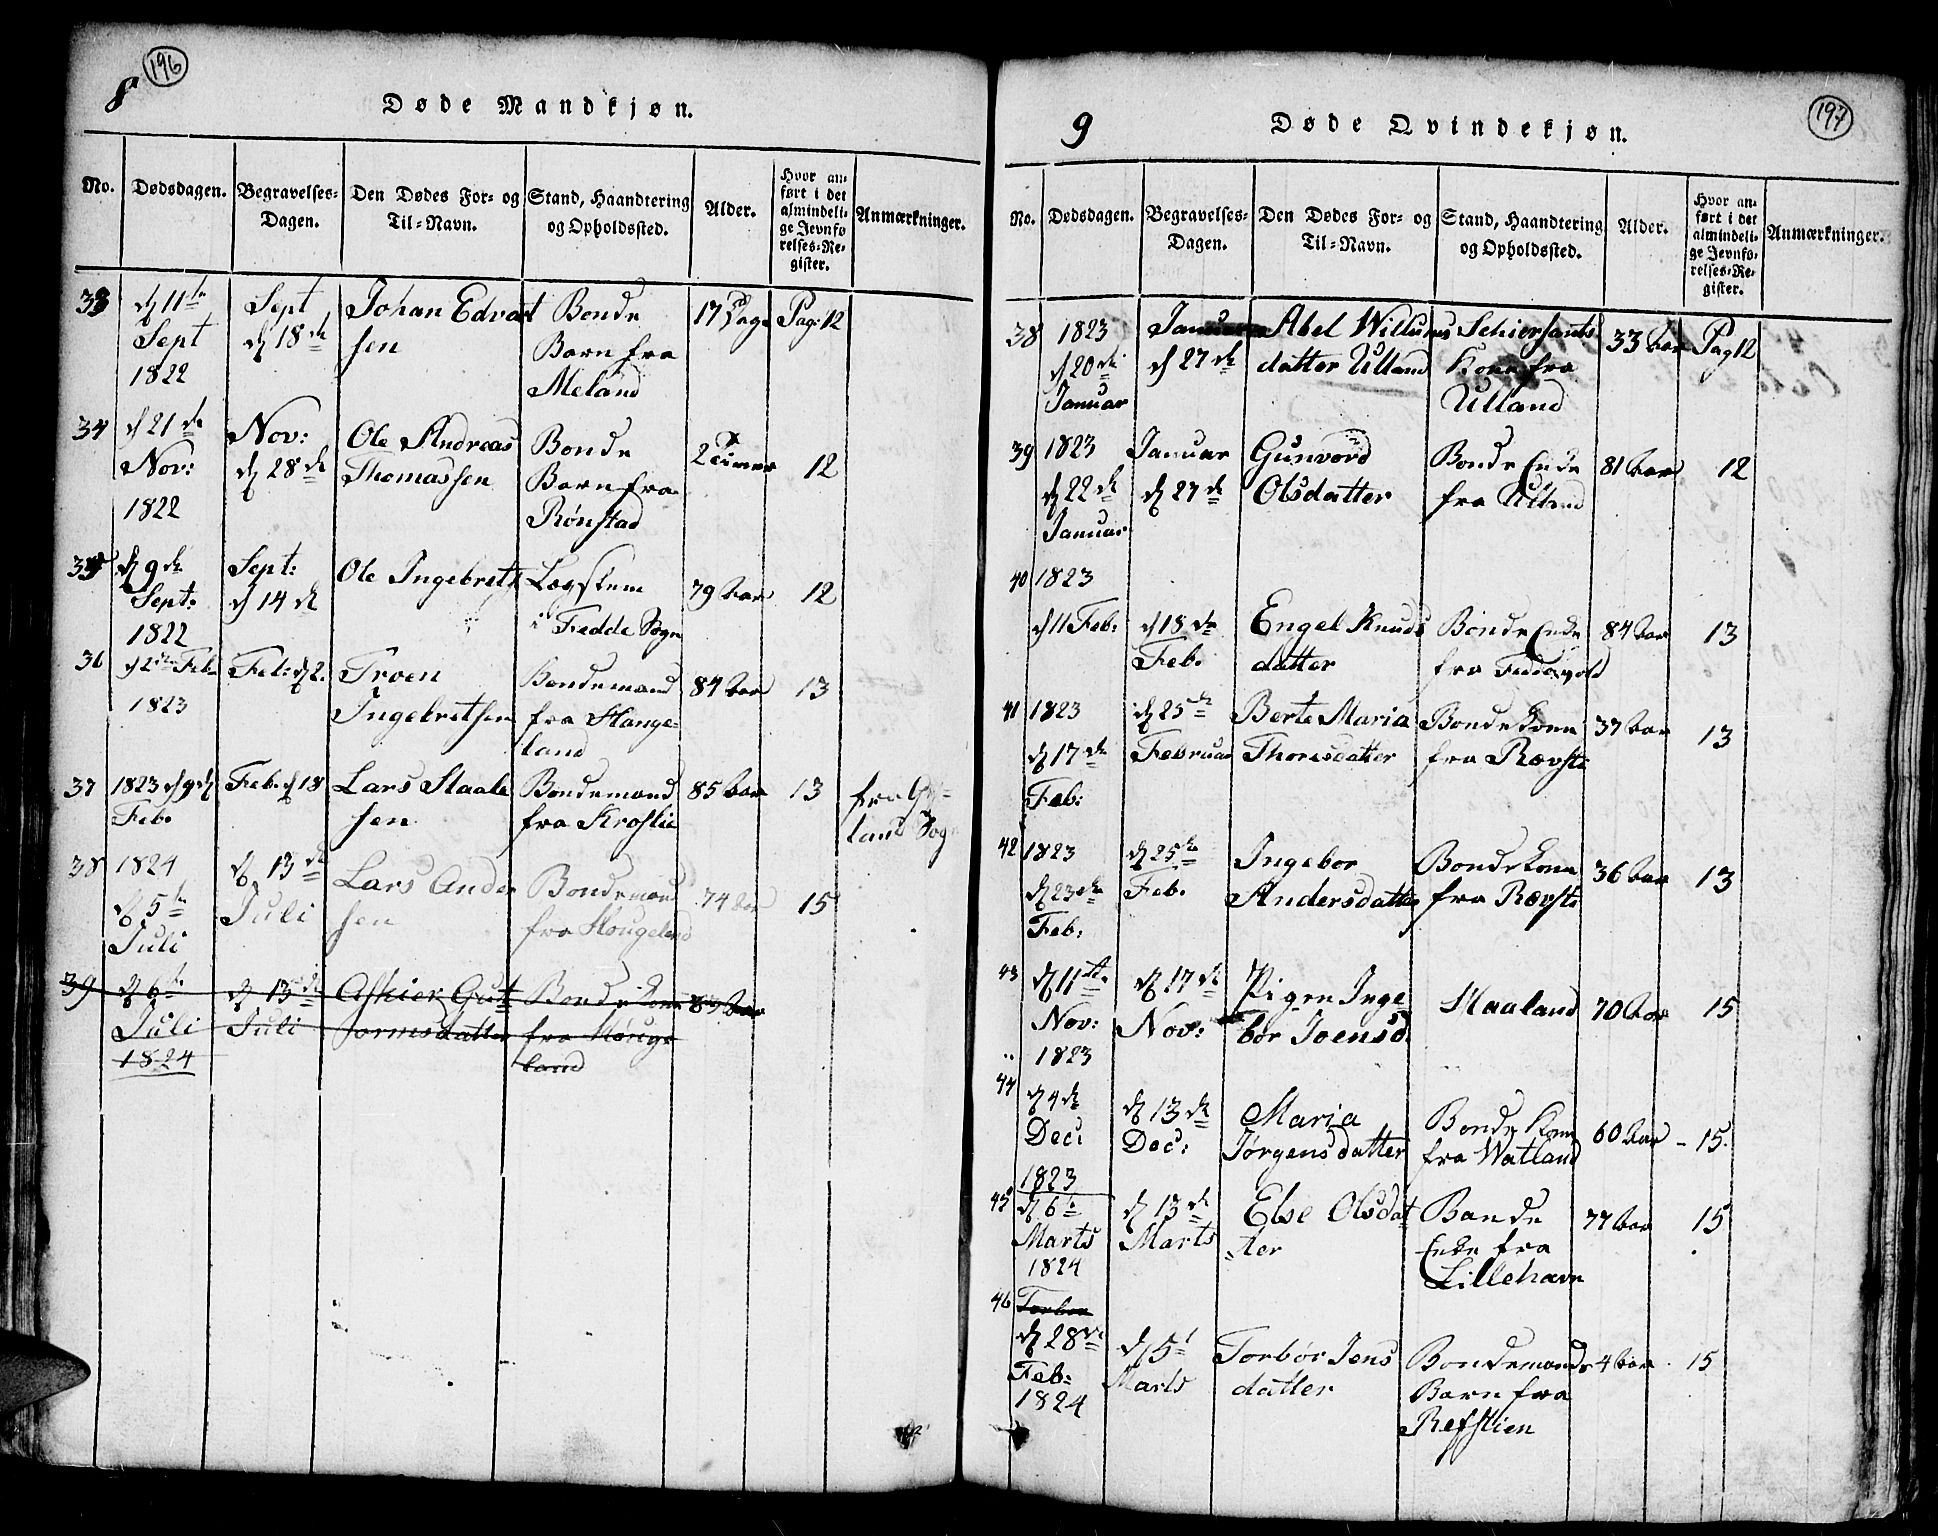 8
196
Døde Mandkjøn.
No.
Dødsdagen.
Begravelses-
Dagen.
Den Dødes For- og
Til-Navn.
Stand, Haandtering
og Opholdssted.
Alder.
Hvor an-
ført i det
almindeli-
ge Jevnfø-
relses-Re-
gister.
Anmærkninger.
33
d 11te
Sept
1822
Sept
d 18de
Johan Edvart
sen
Bonde
Barn fra
Meland
17 Dage
Pag: 12
34
d 21de
Nov:
1822
Nov:
d 28de
Ole Andreas
Thomassen
Bonde
Barn fra
Rönstad
2 Timer
12
35
d 9de
Sept:
1822
Sept:
d 14de
Ole Ingebrets
Lægslem
i Fedde Sogn
79 Aar
12
36
d 2den Feb.
1823
Feb: d 2.
Troen
Ingebretsen
Bondemand
fra Hauge-
land
84 Aar
13
37
1823 d 9de
Feb.
Feb. d 18
Lars Staale
sen
Bondemand
fra Krostie
85 Aar
13
fra Gy-
land Sogn
38
1824
d 5te
Juli
d 13de
Juli
Lars Ander
sen
Bondemand
fra Hougeland
74 Aar
15
39
d 6te
Juli
1824
d 13de
Juli
Askier Gut
tormsdatter
Bonde kone
fra Houge
land
89 Aar
9
Døde Qvindekjøn.
197
No.
Dødsdagen.
Begravelses-
Dagen.
Den Dødes For- og
Til-Navn.
Stand, Haandtering
og Opholdssted.
Alder.
Hvor an-
ført i det
almindeli-
ge Jevnfø-
relses-Re-
gister.
Anmærkninger.
38
1823
d 20de
Januar
Januar
d 27de
Abel Willums
datter Ulland
Schiersants
Kone fra
Ulland
33 Aar
Pag 12
39
1823
d 22de
Januar
Januar
d 27de
Gunvord
Olsdatter
Bonde Enke
fra Ulland
81 Aar
12
40
1823
d 11 Feb:
d 18de
Feb.
Engel Knuds
datter
Bonde Enke
fra Feddevold
84 Aar
13
41
1823
d 17de
Feb:
d 25de
Februar
Berte Maria
Thoresdatter
Bondekone
fra Rævsti
37 Aar
13
42
1823
d 23de
Feb:
d 25de
Feb.
Ingebor
Andersdatter
Bondekone
fra Rævsti
36 Aar
13
43
d 11te
Nov:
1823
d 17de
Nov:
Pigen Inge
bor Joensd.
Haaland
70 Aar
15
44
d 4de
Dec:
1823
d 13de
Dec:
Maria
Jørgensdatter
Bonde Kone
fra Watland
60 Aar
15.
45
d 6te
Marts
1824
d 13de
Marts
Else Olsdat
ter
Bonde
Enke fra
Lillehavn
77 Aar
15
46
Torbor
d 28de
Feb:
1824
d 5te
Marts
Torbór Jens
datter
Bondemands
Barn fra
Refstien
4 Aar
15